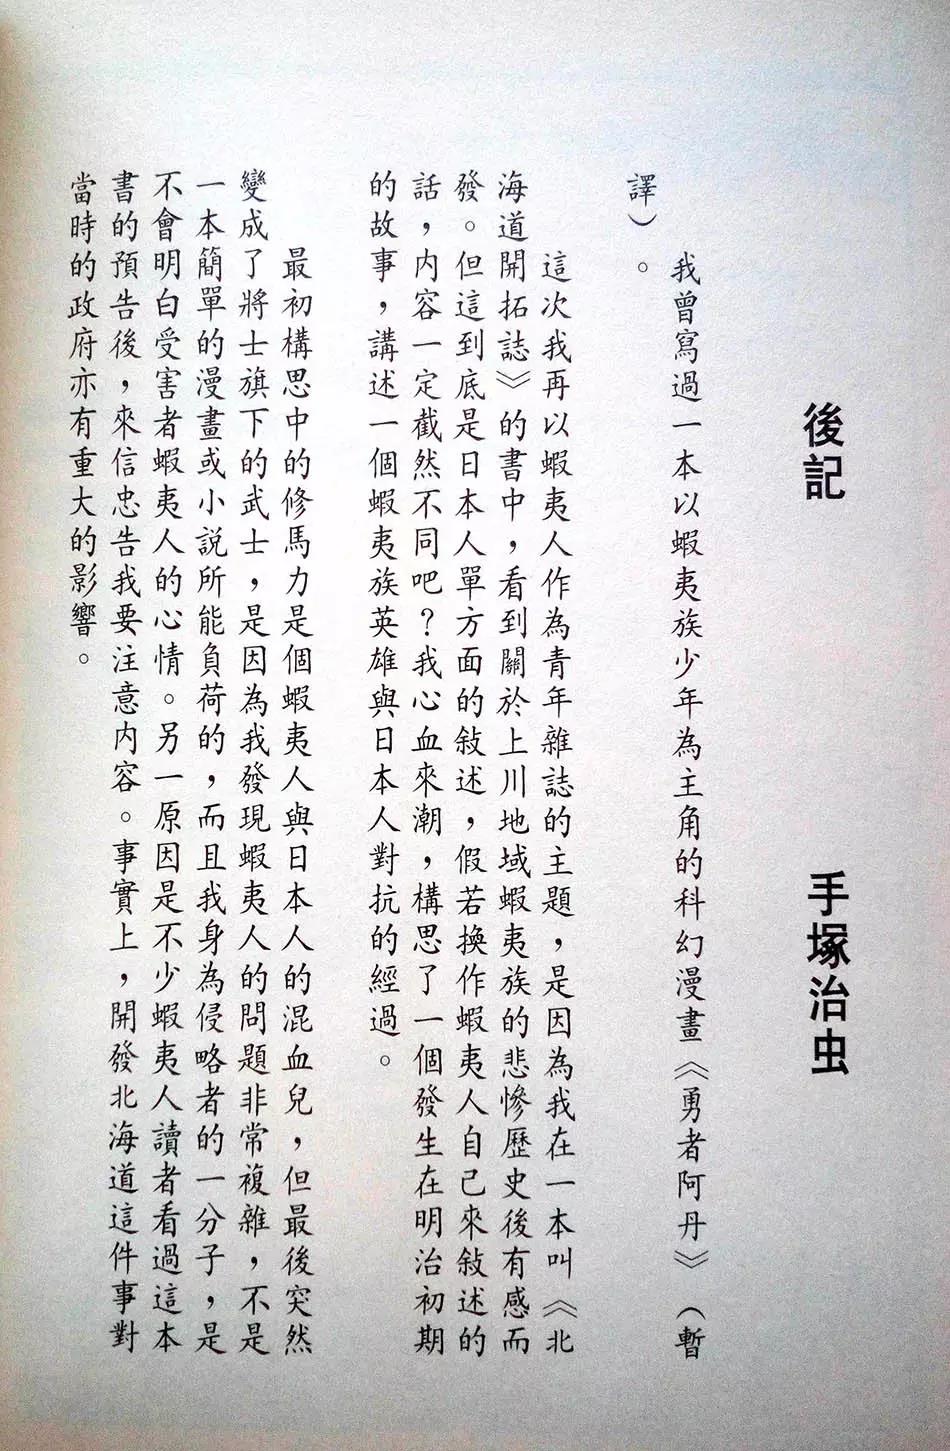 後記　手塚治虫
我曾寫過一本以蝦夷族少年為主角的科幻漫畫《勇者阿丹》（暫
譯）。
這次我再以蝦夷人作為青年雜誌的主題，是因為我在一本叫《北
海道開拓誌》的書中，看到關於上川地域蝦夷族的悲慘歷史後有感而
發。但這到底是日本人單方面的敍述，假若換作蝦夷人自己來敍述的
話，內容一定截然不同吧？我心血來潮，構思了一個發生在明治初期
的故事，講述一個蝦夷族英雄與日本人對抗的經過。
最初構思中的修馬力是個蝦夷人與日本人的混血兒，但最後突然
變成了將士旗下的武士，是因為我發現蝦夷人的問題非常複雜，不是
一本簡單的漫畫或小說所能負荷的，而且我身為侵略者的一分子，是
不會明白受害者蝦夷人的心情。另一原因是不少蝦夷人讀者看過這本
書的預告後，來信忠告我要注意內容。事實上，開發北海道這件事對
當時的政府亦有重大的影響。